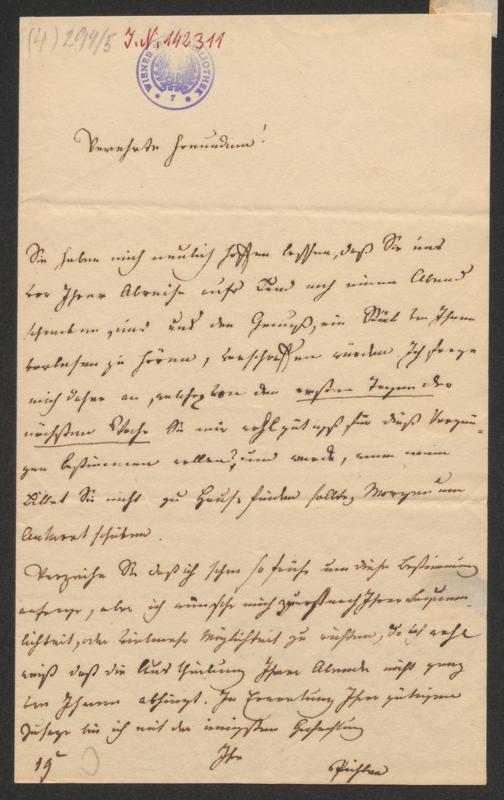 (4) 294/5 I.N. 142311
WIENER BIBLIOTHEK
7
Verehrte Freundinn!
Sie haben mich neulich hoffen lassen, daß Sie uns
vor Ihrer Abreise aufs Land noch einen Abend
schenken, und uns den Genuß, ein Stück von Ihnen
vorlesen zu hören, verschaffen würden. Ich frage
mich daher an, welchen von den ersten Tagen der
nächsten Woche Sie mir wohl gütigst für dieß Vergnü=
gen bestimmen wollen? und werde, wenn mein
Billet Sie nicht zu Hause finden sollte, Morgen um
Antwort schicken.
Verzeihen Sie daß ich schon so frühe um diese Bestimmung
anfrage, aber ich wünsche mich nach Ihrer Bequem
lichkeit, oder vielmehr Möglichkeit zu richten, da ich wohl
weiß daß die Austheilung Ihrer Abende nicht ganz
von Ihnen abhängt. In Erwartung Ihrer gütigen
Zusage bin ich mit der innigsten Hochachtung
Ihre
19 Pichler